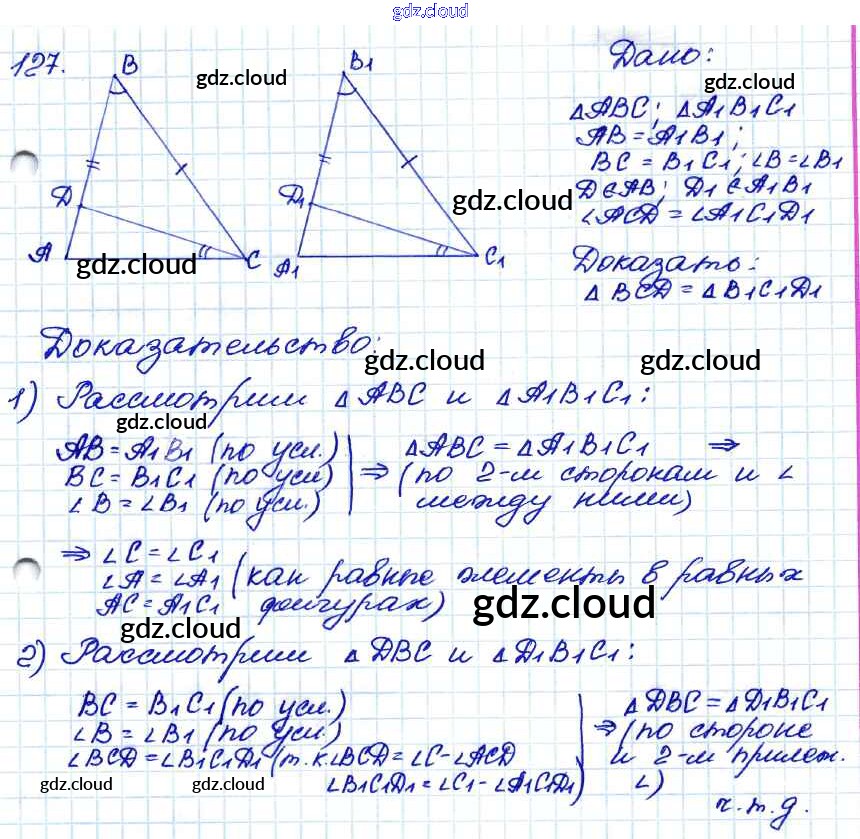 gdz.cloud
127.
B
B1
Дано:
gdz.cloud
gdz.cloud
△ABC; △A1B1C1
AB = A1B1;
BC = B1C1; ∠B = ∠B1
D∈AB; D1∈A1B1
∠ACD = ∠A1C1D1
D
D1
gdz.cloud
A
C
A1
C1
gdz.cloud
Доказать:
△BCD = △B1C1D1
Доказательство:
gdz.cloud
gdz.cloud
1) Рассмотрим △ABC и △A1B1C1:
gdz.cloud
AB = A1B1 (по усл.)
BC = B1C1 (по усл)
∠B = ∠B1 (по усл.)
⇒ △ABC = △A1B1C1 ⇒
(по 2-м сторонам и ∠
между ними)
⇒ ∠C = ∠C1
∠A = ∠A1 (как равные элементы в равных
AC = A1C1 фигурах)
gdz.cloud
gdz.cloud
2) Рассмотрим △DBC и △D1B1C1:
BC = B1C1 (по усл.)
∠B = ∠B1 (по усл.)
∠BCD = ∠B1C1D1 (т.к. ∠BCD = ∠C - ∠ACD
∠B1C1D1 = ∠C1 - ∠A1C1D1)
⇒ △DBC = △D1B1C1
(по стороне
и 2-м прилеж.
∠)
ч.т.д.
gdz.cloud
gdz.cloud
gdz.cloud